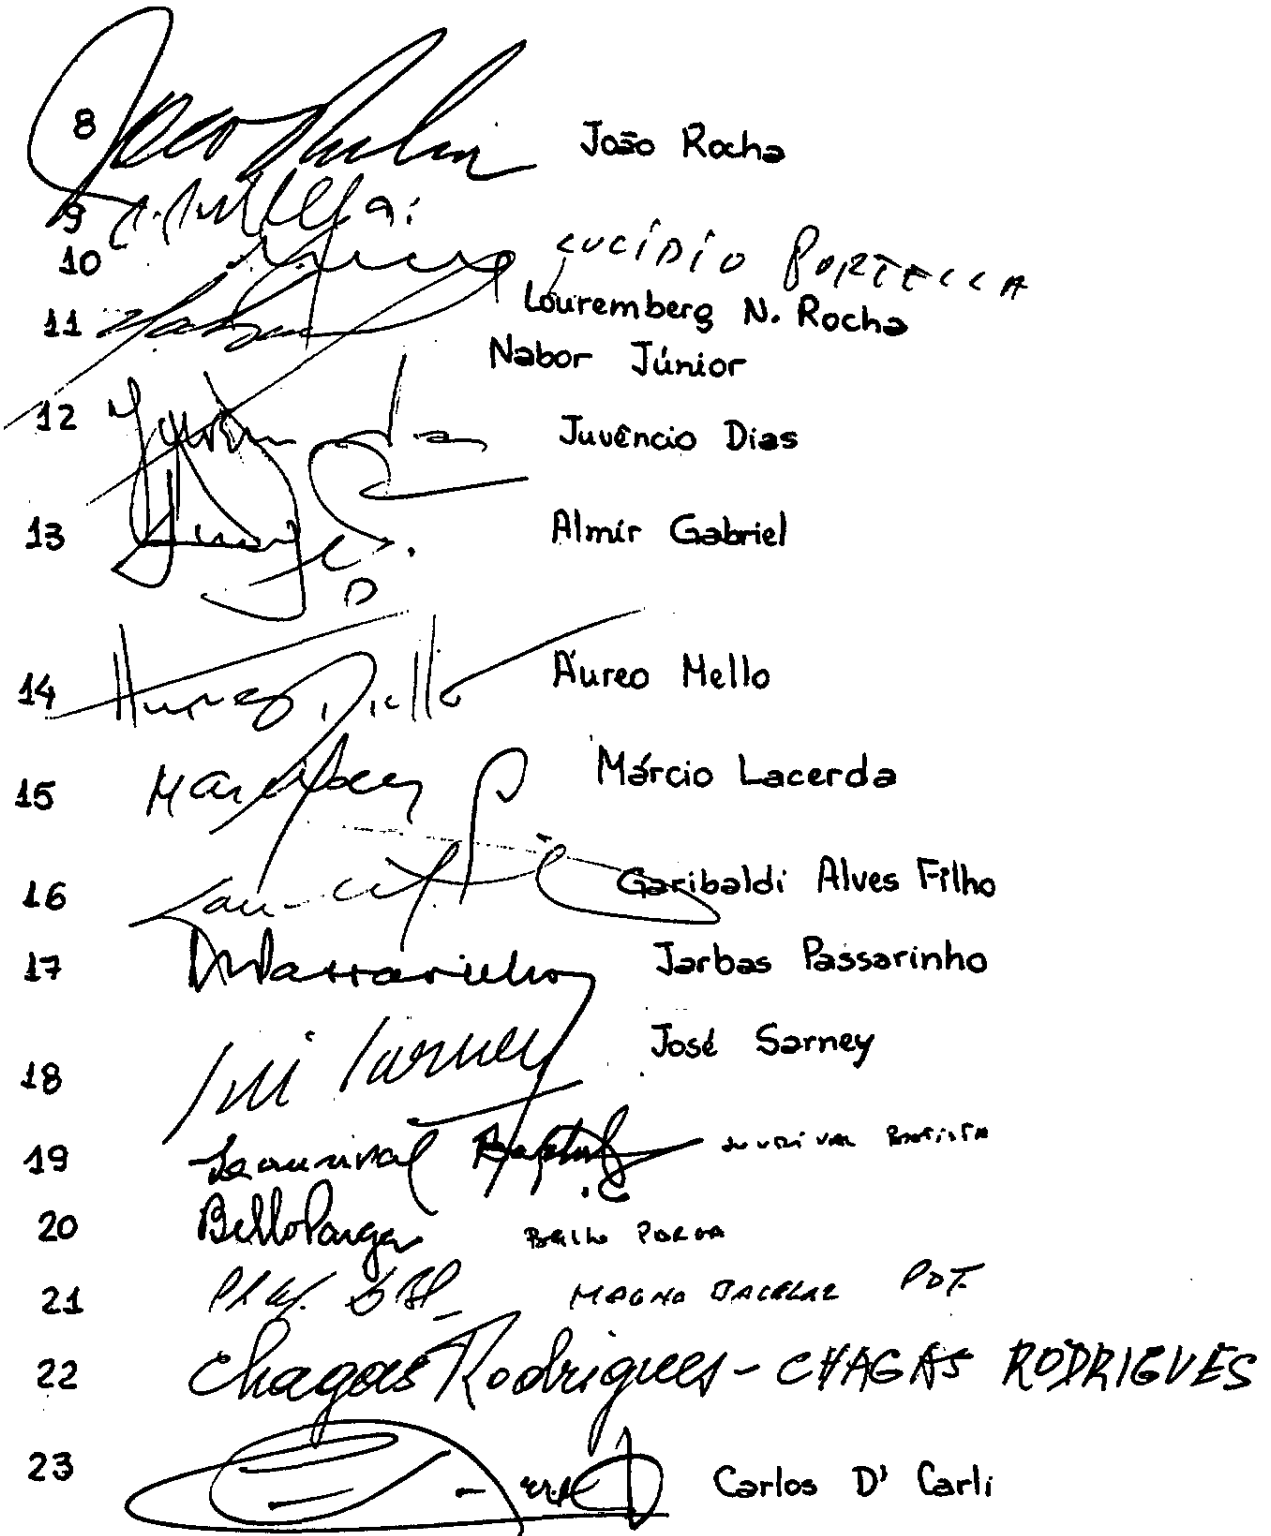 8 João Rocha
9 LUCÍDIO PORTELLA
10 Louremberg N. Rocha
11 Nabor Júnior
12 Juvêncio Dias
13 Almir Gabriel
14 Áureo Mello
15 Márcio Lacerda
16 Garibaldi Alves Filho
17 Jarbas Passarinho
18 José Sarney José Sarney
19 Lourival Baptista LOURIVAL BAPTISTA
20 Bello Parga BELLO PARGA
21 MAGNO BACELAR PDT.
22 Chagas Rodrigues - CHAGAS RODRIGUES
23 Carlos D' Carli